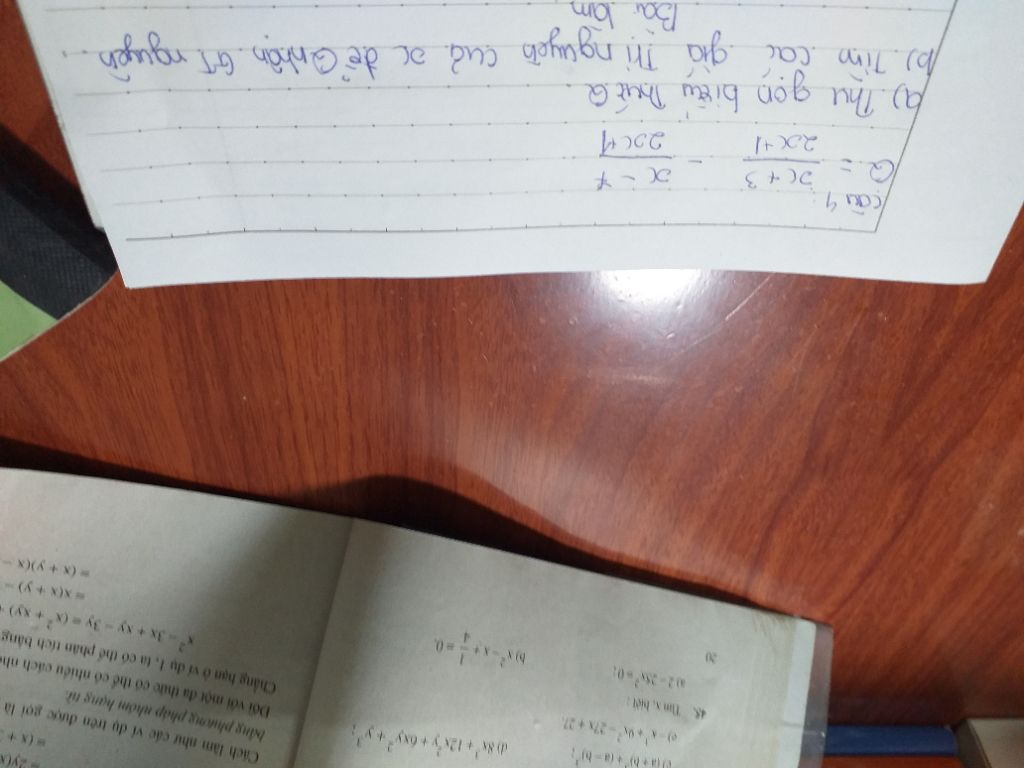 Câu 4:
Q = x+3 / 2x+1 - x-7 / 2x+1
a) Thu gọn biểu thức Q
b). Tìm các giá trị nguyên của x để Q nhận GT nguyên
Bài làm
c) (a + b)³ + (a – b)³;
d) 8x³ + 12x²y + 6xy² + y³;
e) – x³ + 9x² – 27x + 27.
45. Tìm x, biết :
a) 2 – 25x² = 0 ;
b) x² – x + 1/4 = 0.
20
= 2y(x
= (x +
Cách làm như các ví dụ trên được gọi là
bằng phương pháp nhóm hạng tử.
Đối với một đa thức có thể có nhiều cách nh
Chẳng hạn ở ví dụ 1, ta có thể phân tích bằng
x² – 3x + xy – 3y = (x² + xy) +
= x(x + y) –
= (x + y)(x –